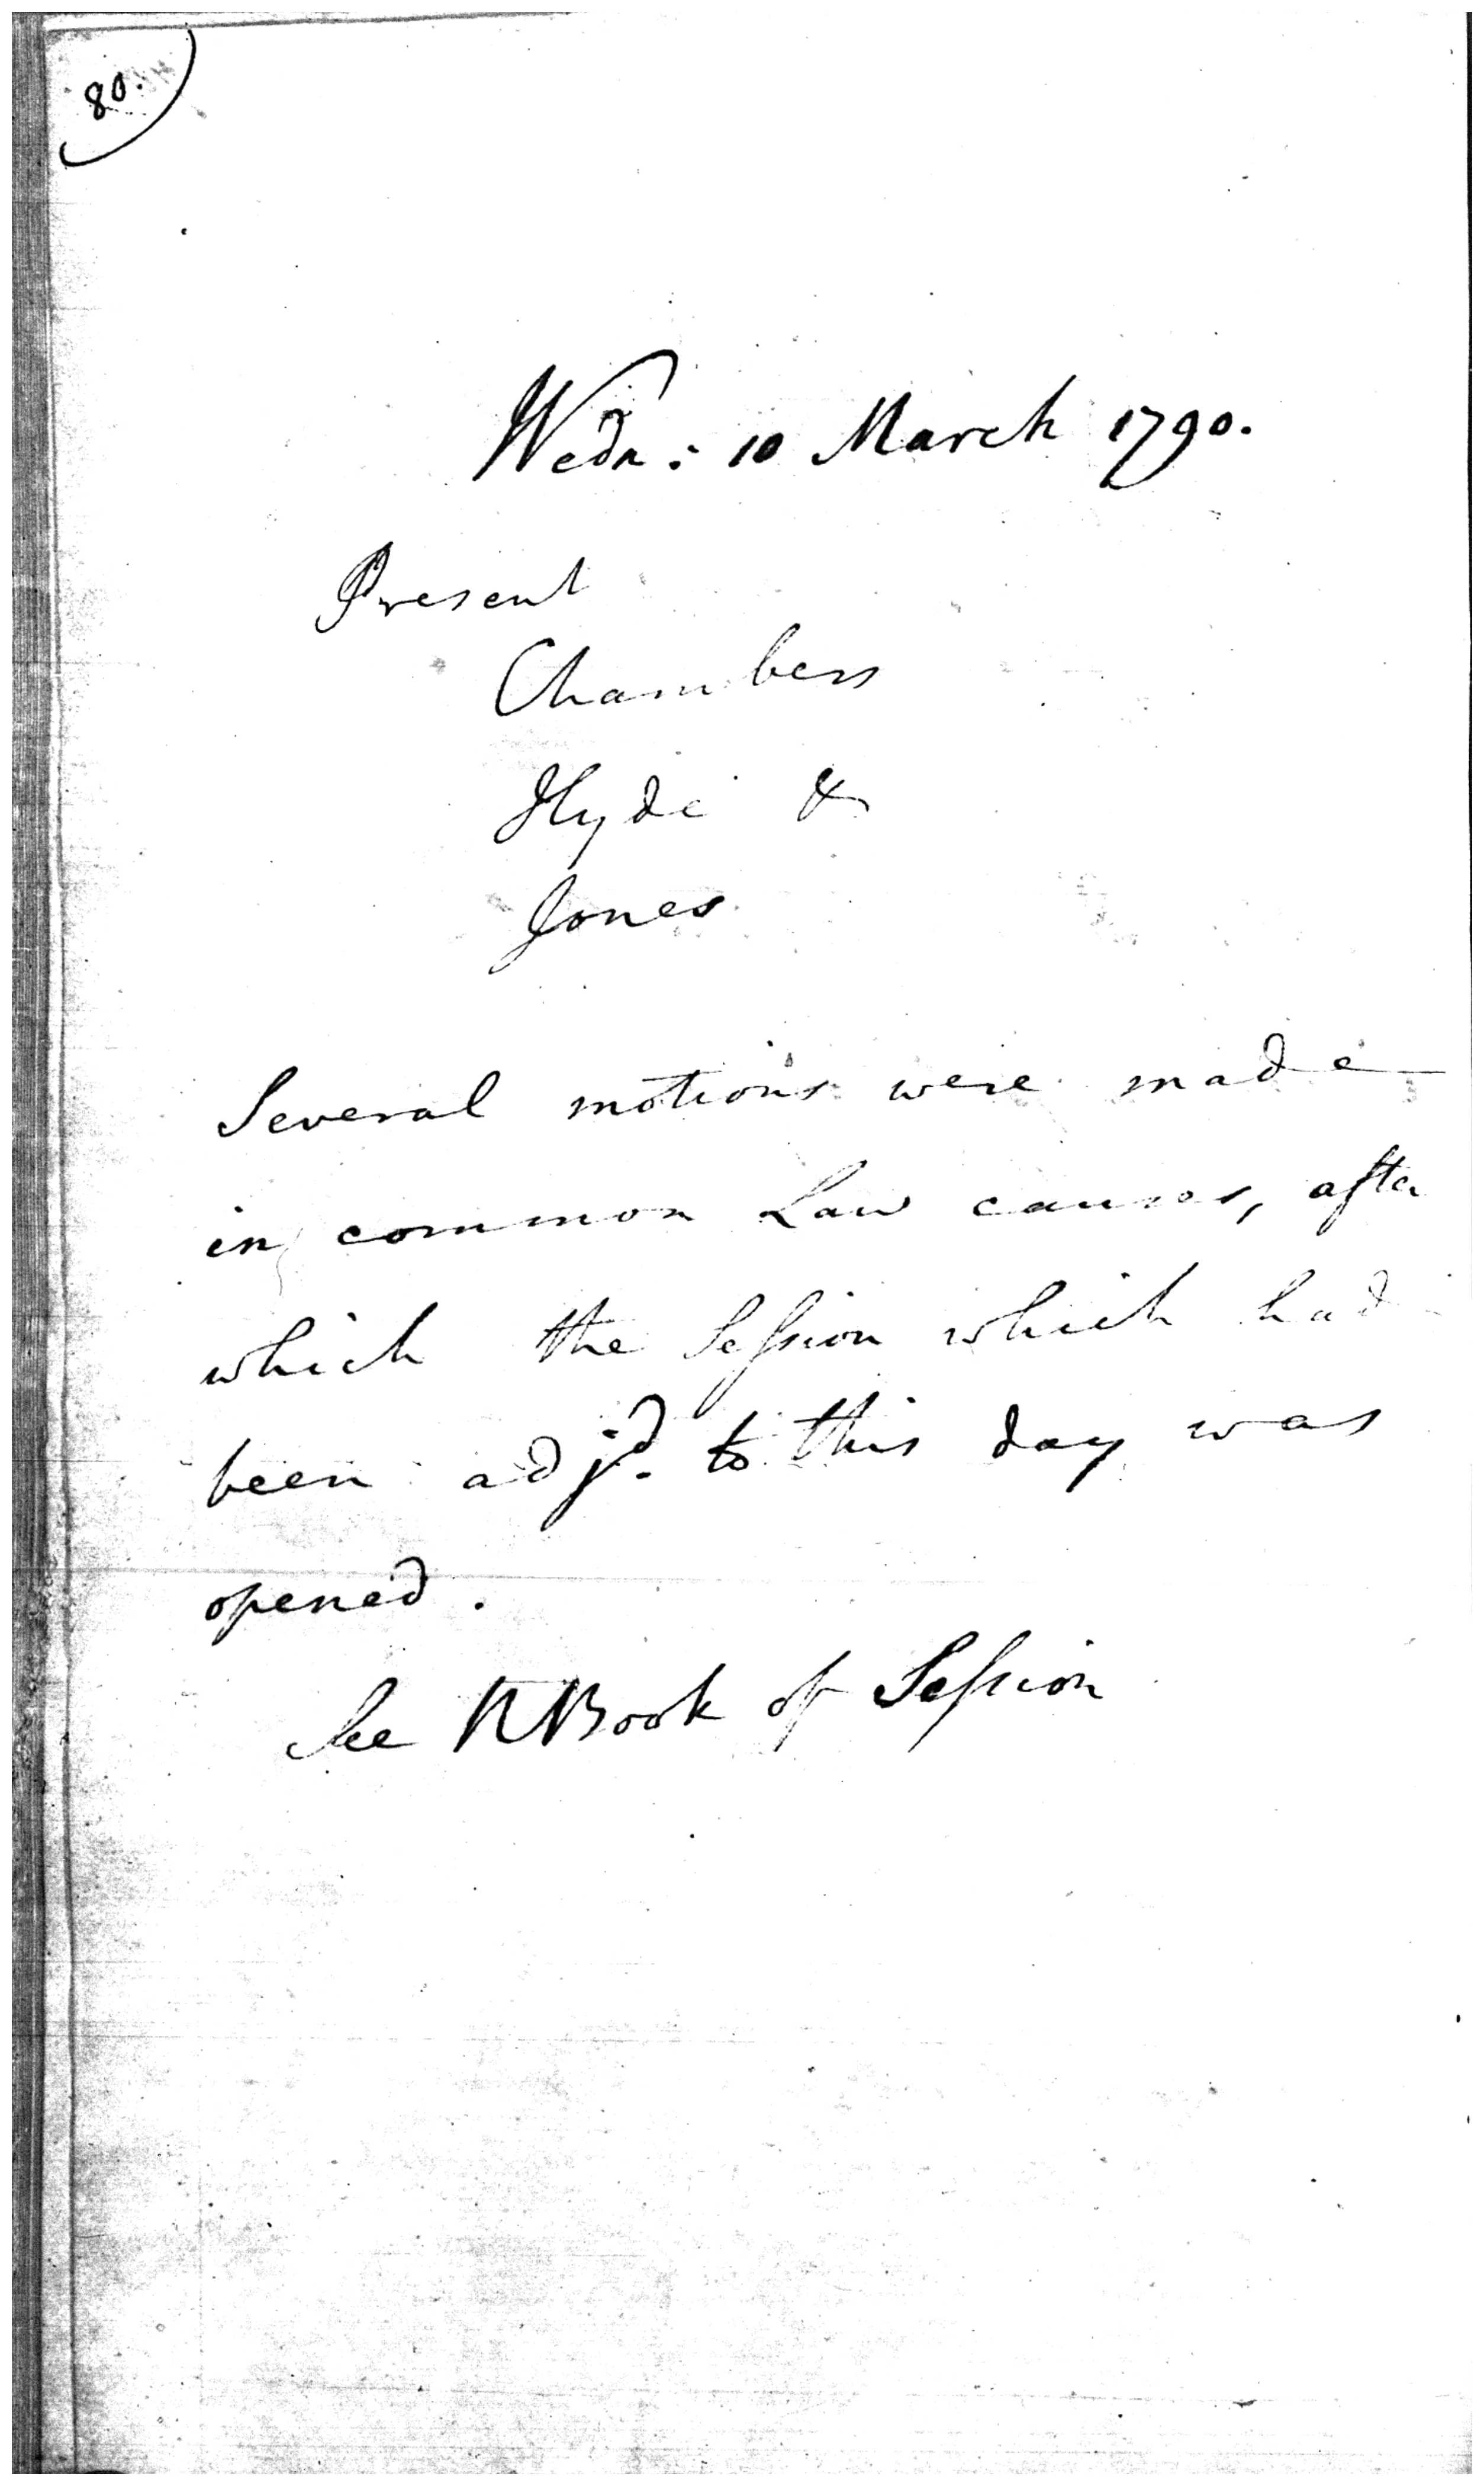 80.
Wedn: 10 March 1790.
Present
Chambers
Hyde &
Jones
Several motions were made
in common Law causes, after
which the Session which had
been adjd. to this day was
opened.
See NBook of Session